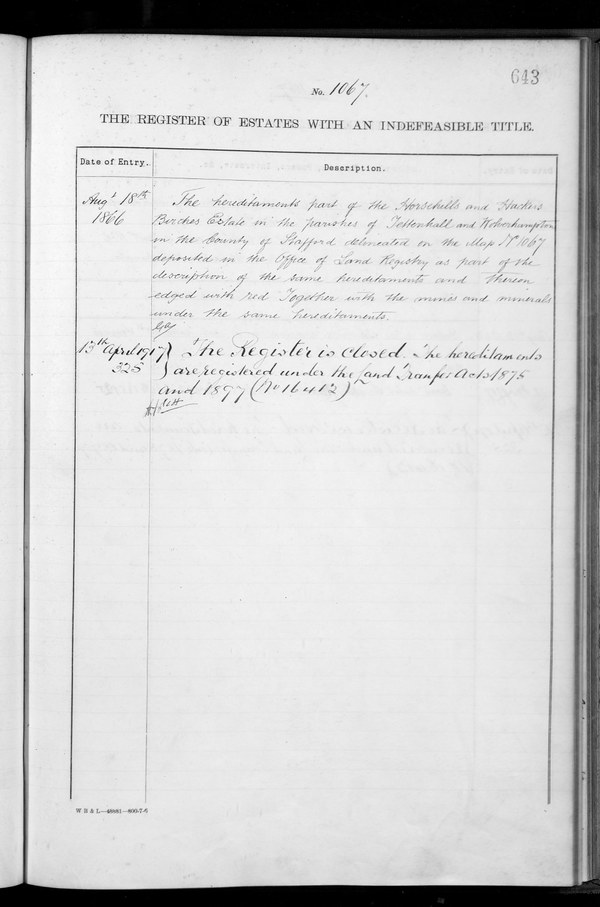 643
No. 1067.
THE REGISTER OF ESTATES WITH AN INDEFEASIBLE TITLE.
Date of Entry. Description.
Augt 18th The hereditaments part of the Horsehills and Hackers
1866 Birches Estate in the parishes of Tettenhall and Wolverhampton
in the County of Stafford delineated on the Map No 1067
deposited in the Office of Land Registry as part of the
description of the same hereditaments and therein
edged with red Together with the mines and minerals
under the same hereditaments.
13th April 1917 } The Register is closed. The hereditaments
325 } are registered under the Land Tranfer Acts 1875
and 1897 (No 16412)
W B & L—48881—800-7-6